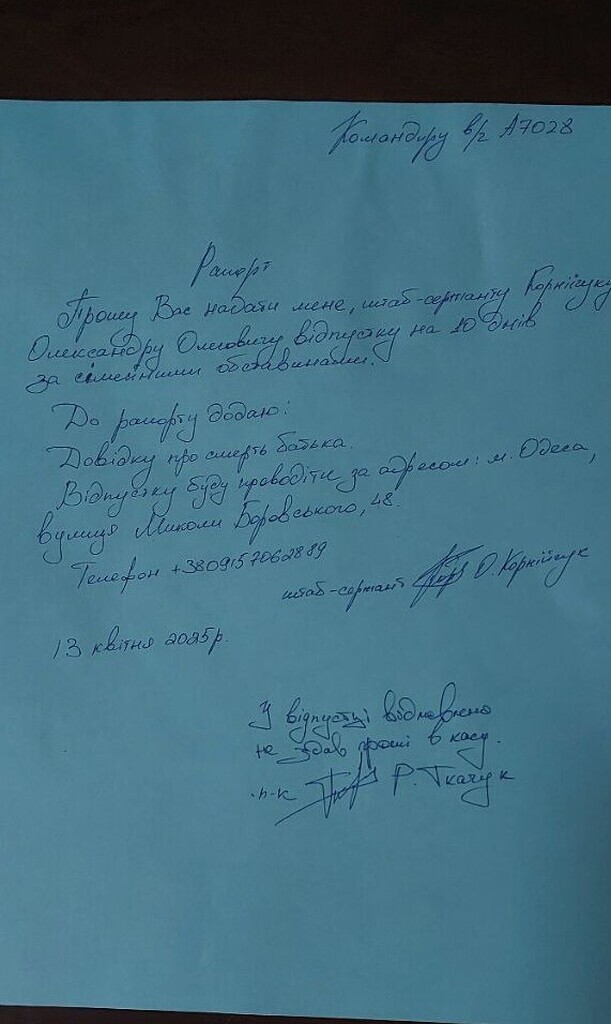 Командиру в/ч А7028
Рапорт
Прошу Вас надати мене, штаб-сержанту Корнійчуку
Олександру Олеговичу відпустку на 10 днів
за сімейними обставинами.
До рапорту додаю:
Довідку про смерть батька.
Відпустку буду проводіти за адресом: м. Одеса,
вулиця Миколи Боровського, 48.
Телефон +3809157062889
штаб-сержант О. Корнійчук
13 квітня 2025р.
У відпустці відмовлено
не здав гроші в касу.
п-к Р. Ткачук